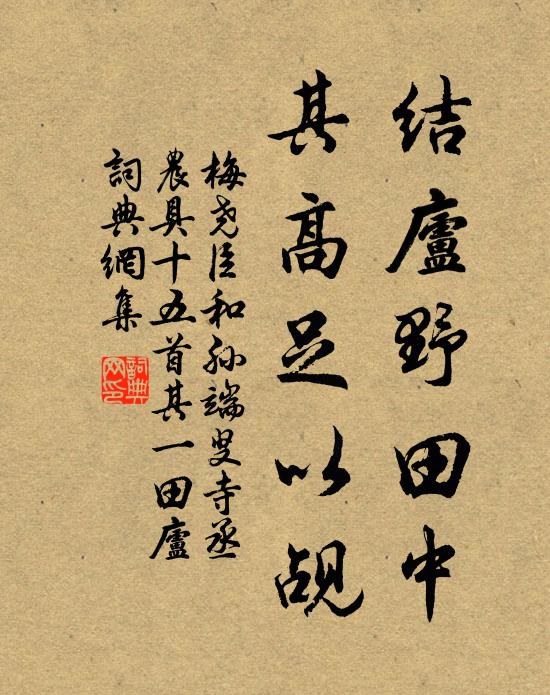 结廬野田中
其高足以觇
梅尧臣和孙端叟寺丞
農具十五首其一田廬
詞典網集
詞典
网印